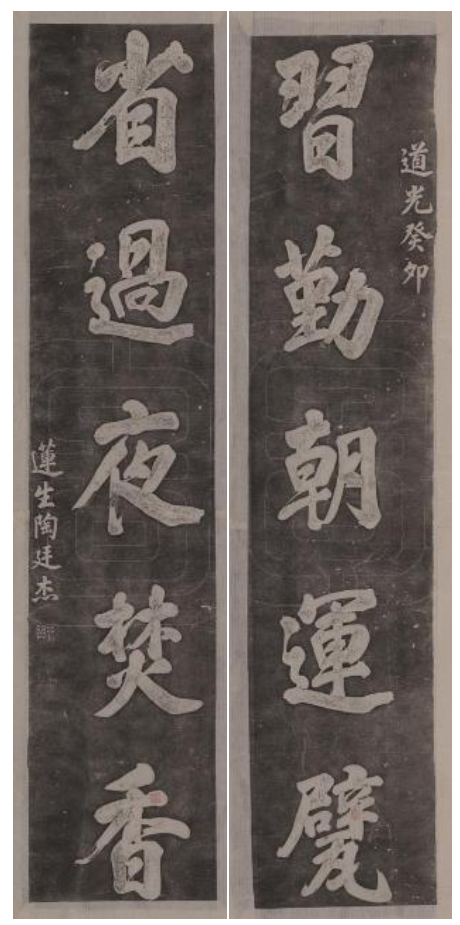 道光癸卯
習勤朝運甓
省過夜焚香
蓮生陶廷杰